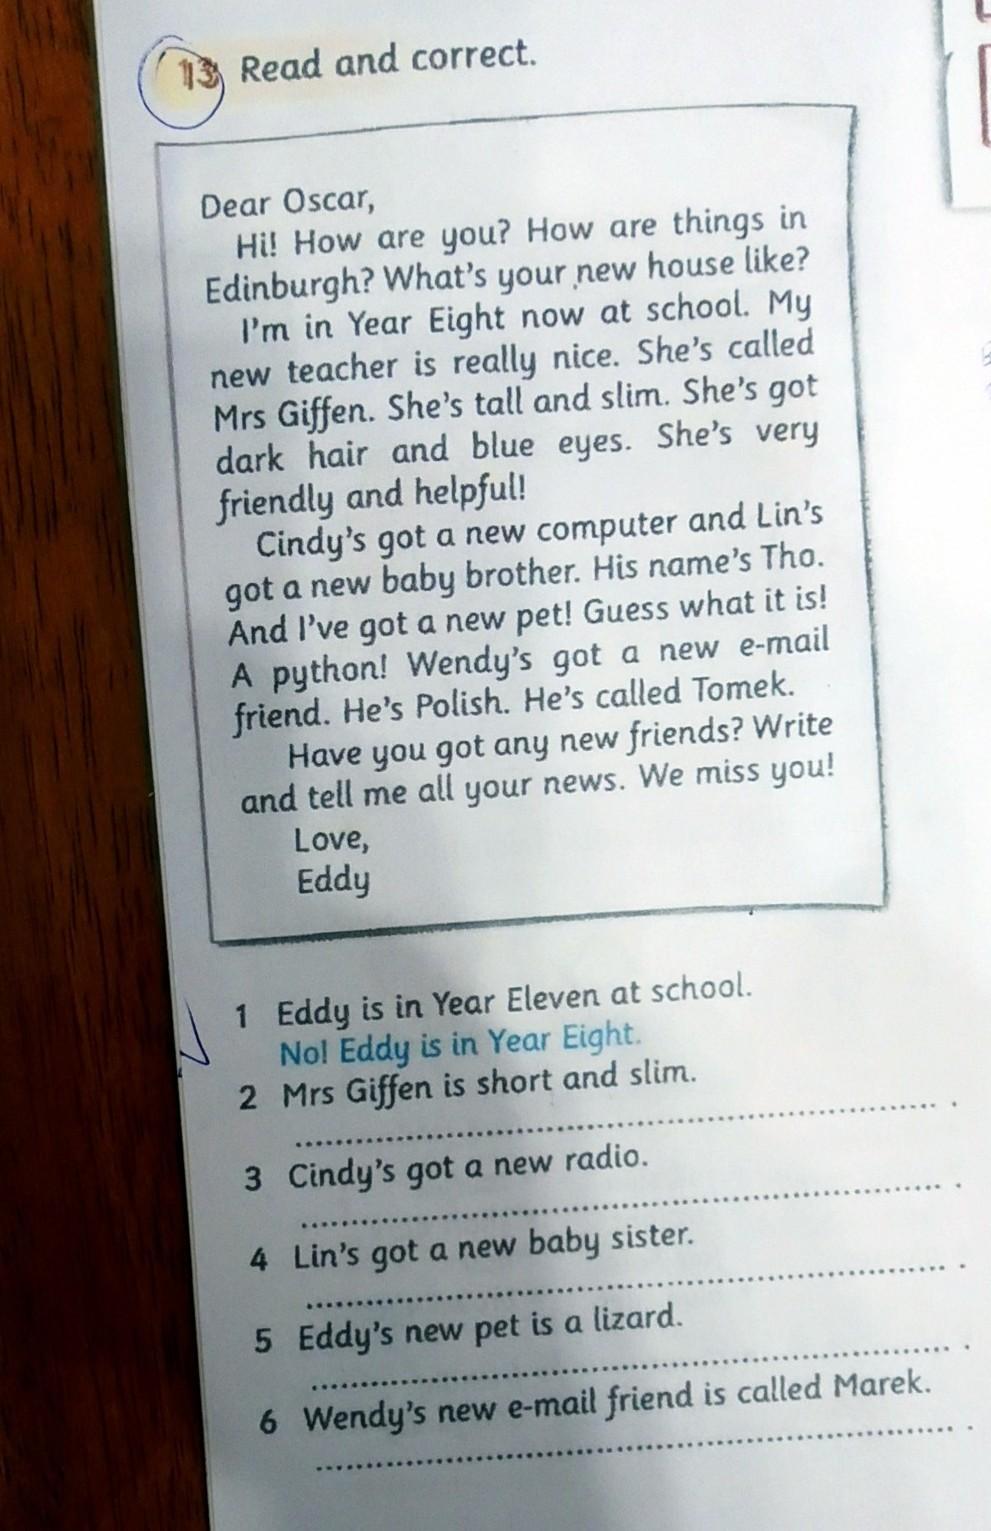 13 Read and correct.
Dear Oscar,
Hi! How are you? How are things in
Edinburgh? What's your new house like?
I'm in Year Eight now at school. My
new teacher is really nice. She's called
Mrs Giffen. She's tall and slim. She's got
dark hair and blue eyes. She's very
friendly and helpful!
Cindy's got a new computer and Lin's
got a new baby brother. His name's Tho.
And I've got a new pet! Guess what it is!
A python! Wendy's got a new e-mail
friend. He's Polish. He's called Tomek.
Have you got any new friends? Write
and tell me all your news. We miss you!
Love,
Eddy
1 Eddy is in Year Eleven at school.
No! Eddy is in Year Eight.
2 Mrs Giffen is short and slim.
.
3 Cindy's got a new radio.
.
4 Lin's got a new baby sister.
.
5 Eddy's new pet is a lizard.
.
6 Wendy's new e-mail friend is called Marek.
.